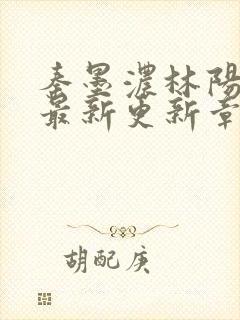 秦墨濃林陽
最新更新章
胡配庚